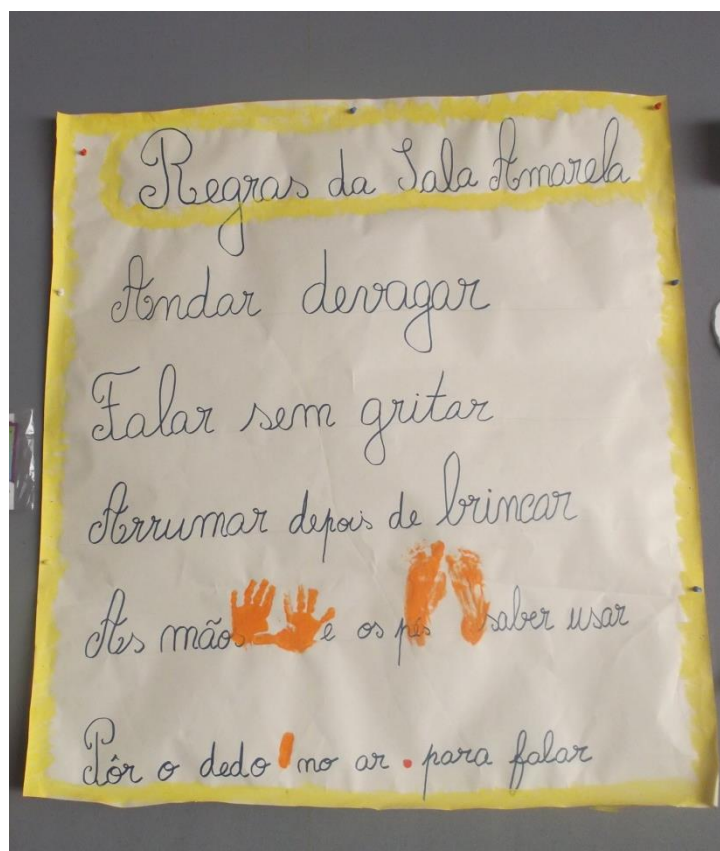 Regras da Sala Amarela
Andar devagar
Falar sem gritar
Arrumar depois de brincar
As mãos e os pés saber usar
Pôr o dedo no ar para falar